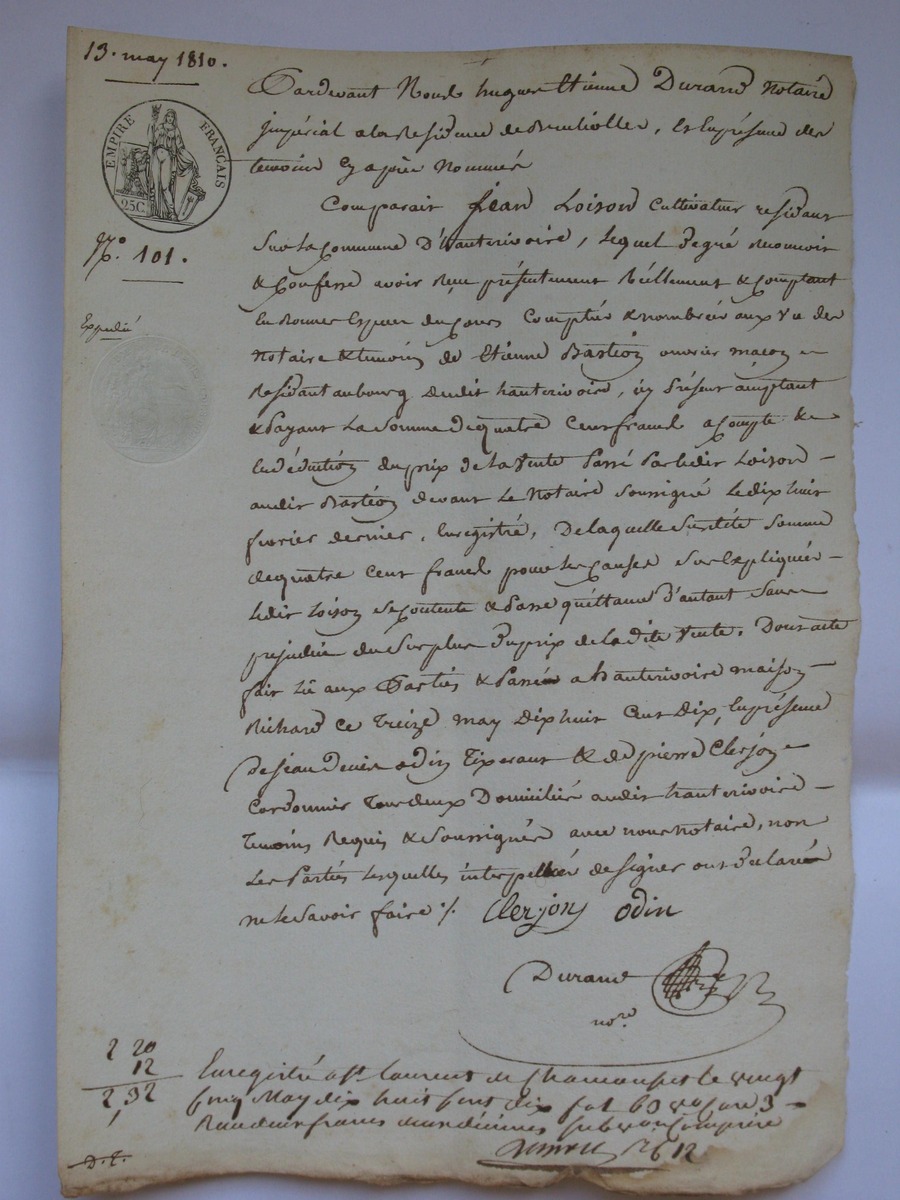 13. may 1810.
EMPIRE FRANÇAIS
25C.
N.º 101.
Expedié
Pardevant Nous hugues Etienne Durand Notaire
Imperial a la Residence de Brullioles, En presence des
temoins Cy apres Nommés
Comparait Jean Loison Cultivateur residant
Sur la Commune D'hauterivoire, lequel de gré Reconnoit
& Confesse avoir Reçu présentement Réellement & Comptant
En Bonnes Espèces du Cours Comptée & nombrée aux vu des
Notaire & temoins de Etienne Bastion ouvrier maçon
Residant au bourg dudit hauterivoire, icy Présent acceptant
& Payant la Somme de quatre Cent francs a Compte &
En déduction du prix de la Vente Passé Par ledit Loison
audit Bastion devant le Notaire Soussigné le dix huit
fevrier dernier, Enregistré, De laquelle Susdite Somme
de quatre Cent francs pour les Causes Sus Expliquées
ledit Loison Se Contente & Passe quittance D'autant Sans
prejudice du Surplus du prix de la dite Vente. Dont acte
fait lû aux Parties & Passé a hauterivoire maison
Richard ce treize may dix huit Cent dix, En présence
de Jean Denis odin tixerant & de pierre Clerjon
Cordonnier tous deux Domiciliés audit hauterivoire
temoins Requis & Soussignés avec nous notaire, non
les Parties lesquelles interpellées de Signer ont declaré
ne le Savoir faire ./.
Clerjon odin
Durand
no.re
2 20
12
2, 32
Enregistré a St. laurent de Chamousset le vingt
cinq May dix huit cent dix fol 60 vo Case 3
Recu deux francs vingt centimes subvention comprise
D. E.